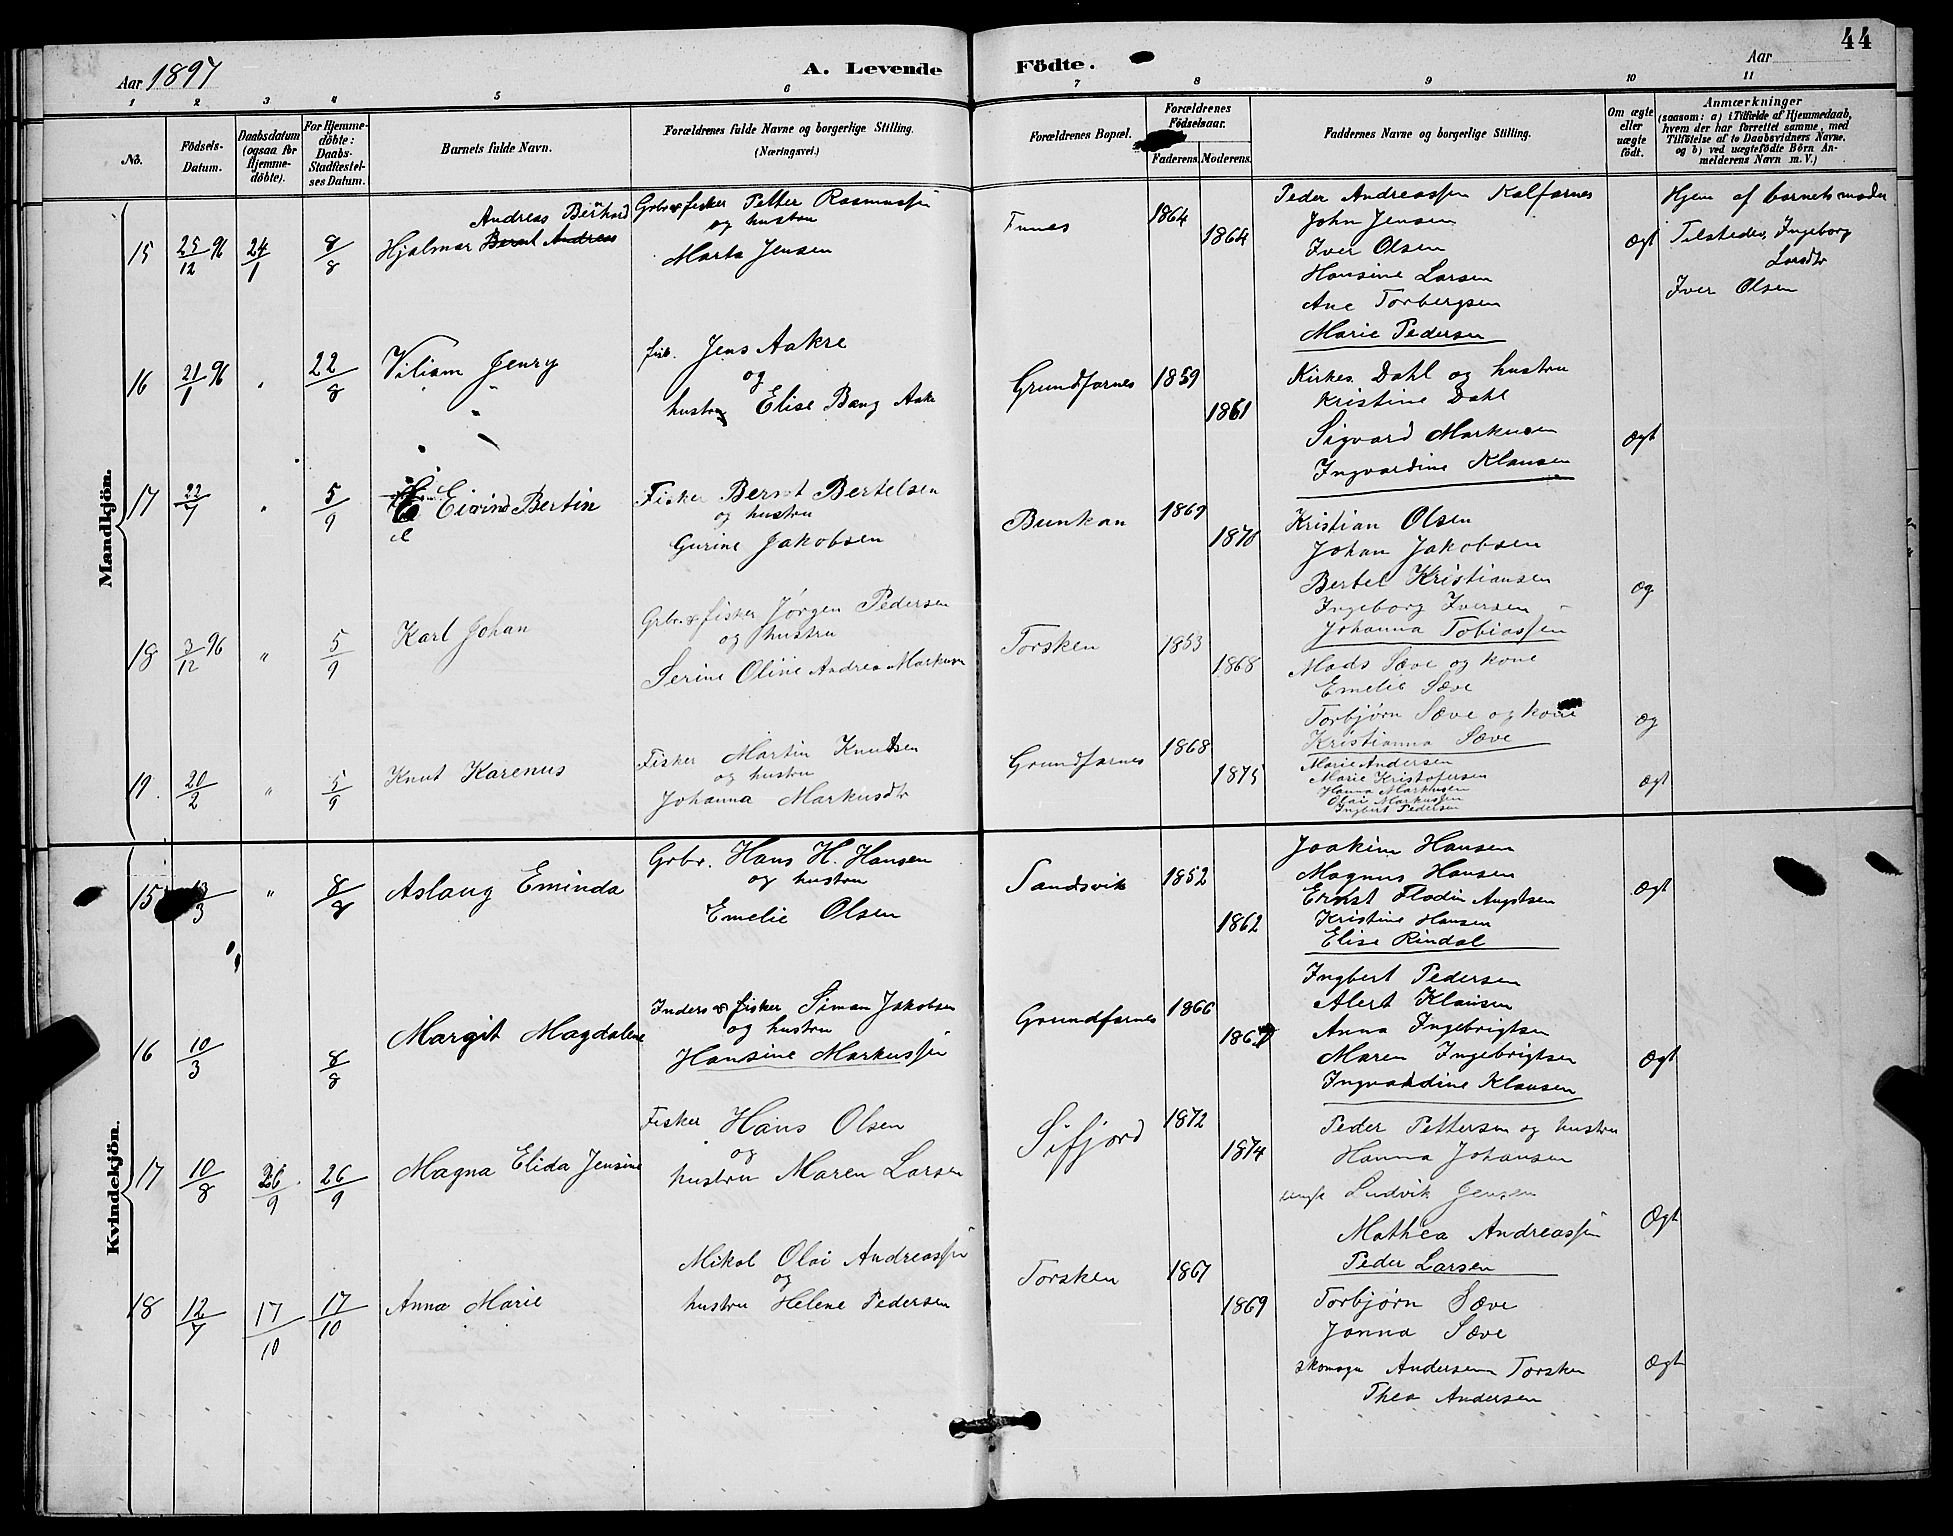 44
Aar 1897
A. Levende Födte.
Aar
1 2 3 4 5 6 7 8 9 10 11
No.
Födsels-Datum.
Daabsdatum (ogsaa for Hjemme-döbte).
For Hjemme-döbte: Daabs-Stadfæstel-ses Datum.
Barnets fulde Navn.
Forældrenes fulde Navne og borgerlige Stilling. (Næringsvei.)
Forældrenes Bopæl.
Forældrenes Födselsaar.
Faderens. Moderens.
Faddernes Navne og borgerlige Stilling.
Om ægte eller uægte födt.
Anmærkninger
(saasom: a) i Tilfælde af Hjemmedaab, hvem der har forrettet samme, med Tilföielse af to Daabsvidners Navne, og b) ved uægtefödte Börn Anmelderens Navn m. V.)
Mandkjön.
15 25/12 96 24/1 8/8
Andreas Bernhard
Hjalmar Bernt Andreas
Grbr & fisker Petter Rasmussen
og hustru
Marta Jensen
Funes 1864 1864
Peder Andreassen Kalfarnes
John Jensen
Iver Olsen
Hansine Larsen
Ane Torbergsen
Marie Pedersen
Ægt
Hjem af barnets moder
Tilstede, Ingeborg
Larsdtr
Iver Olsen
16 21/1 96 " 22/8
Viliam Henry
fisk. Jens Aakre
og
hustru Elise Bang Aakr
Grundfarnes 1859 1861
Kirkes. Dahl og hustru
Kristine Dahl
Sigvard Markusen
Ingvardine Klausen
Ægt
17 22/7 " 5/9
Eivind Bertin
Fisker Bernt Bertelsen
og hustru
Gurine Jakobsen
Bunkan 1869 1870
Kristian Olsen
Johan Jakobsen
Bertel Kristiansen
Ingeborg Iversen
Johanna Tobiassen
Æg
18 3/12 96 " 5/9
Karl Johan
Grbr. & fisker Jørgen Pedersen
og hustru
Serine Oline Andrea Markusen
Torsken 1853 1868
Mads Sæve og kone
Emelie Sæve
Torbjørn Sæve og kone
Kristianna Sæve
Æg
19 20/2 " 5/9
Knut Karenus
Fisker Martin Knudsen
og hustru
Johanna Markusdtr
Grundfarnes 1868 1875
Marie Andersen
Marie Kristofersen
Hanna Markussen
Olai Markussen
Ingbert Pedersen
Ægt
Kvindekjön.
15 13/3 " 8/8
Aslaug Eminda
Grbr. Hans H. Hansen
og hustru
Emelie Olsen
Sandsvik 1852 1862
Joakim Hansen
Magnus Hansen
Ernst Flodin Angstsen
Kristine Hansen
Elise Rindal
Ægt
16 10/3 8/8
Margit Magdalene
Inders & fisker Siman Jakobsen
og hustru
Hansine Markussen
Grundfarnes 1866
Ingbert Pedersen
Alert Klausen
Anna Ingebrigtsen
Maren Ingebrigtsen
Ingvardine Klausen
Ægt
17 10/8 26/9 26/9
Magna Elida Jensine
Fisker Hans Olsen
og
hustru Maren Larsen
Sifjord 1872 1874
Peder Pettersen og hustru
Hanna Johansen
ungk Ludvik Jensen
Mathea Andreassen
Peder Larsen
Ægt
18 12/7 17/10 17/10
Anna Marie
Mikal Olai Andreassen
og
hustru Helene Pedersen
Torsken 1867 1869
Torbjørn Sæve
Janna Sæve
skomagr Andersen Torsken
Thea Andersen
Ægt